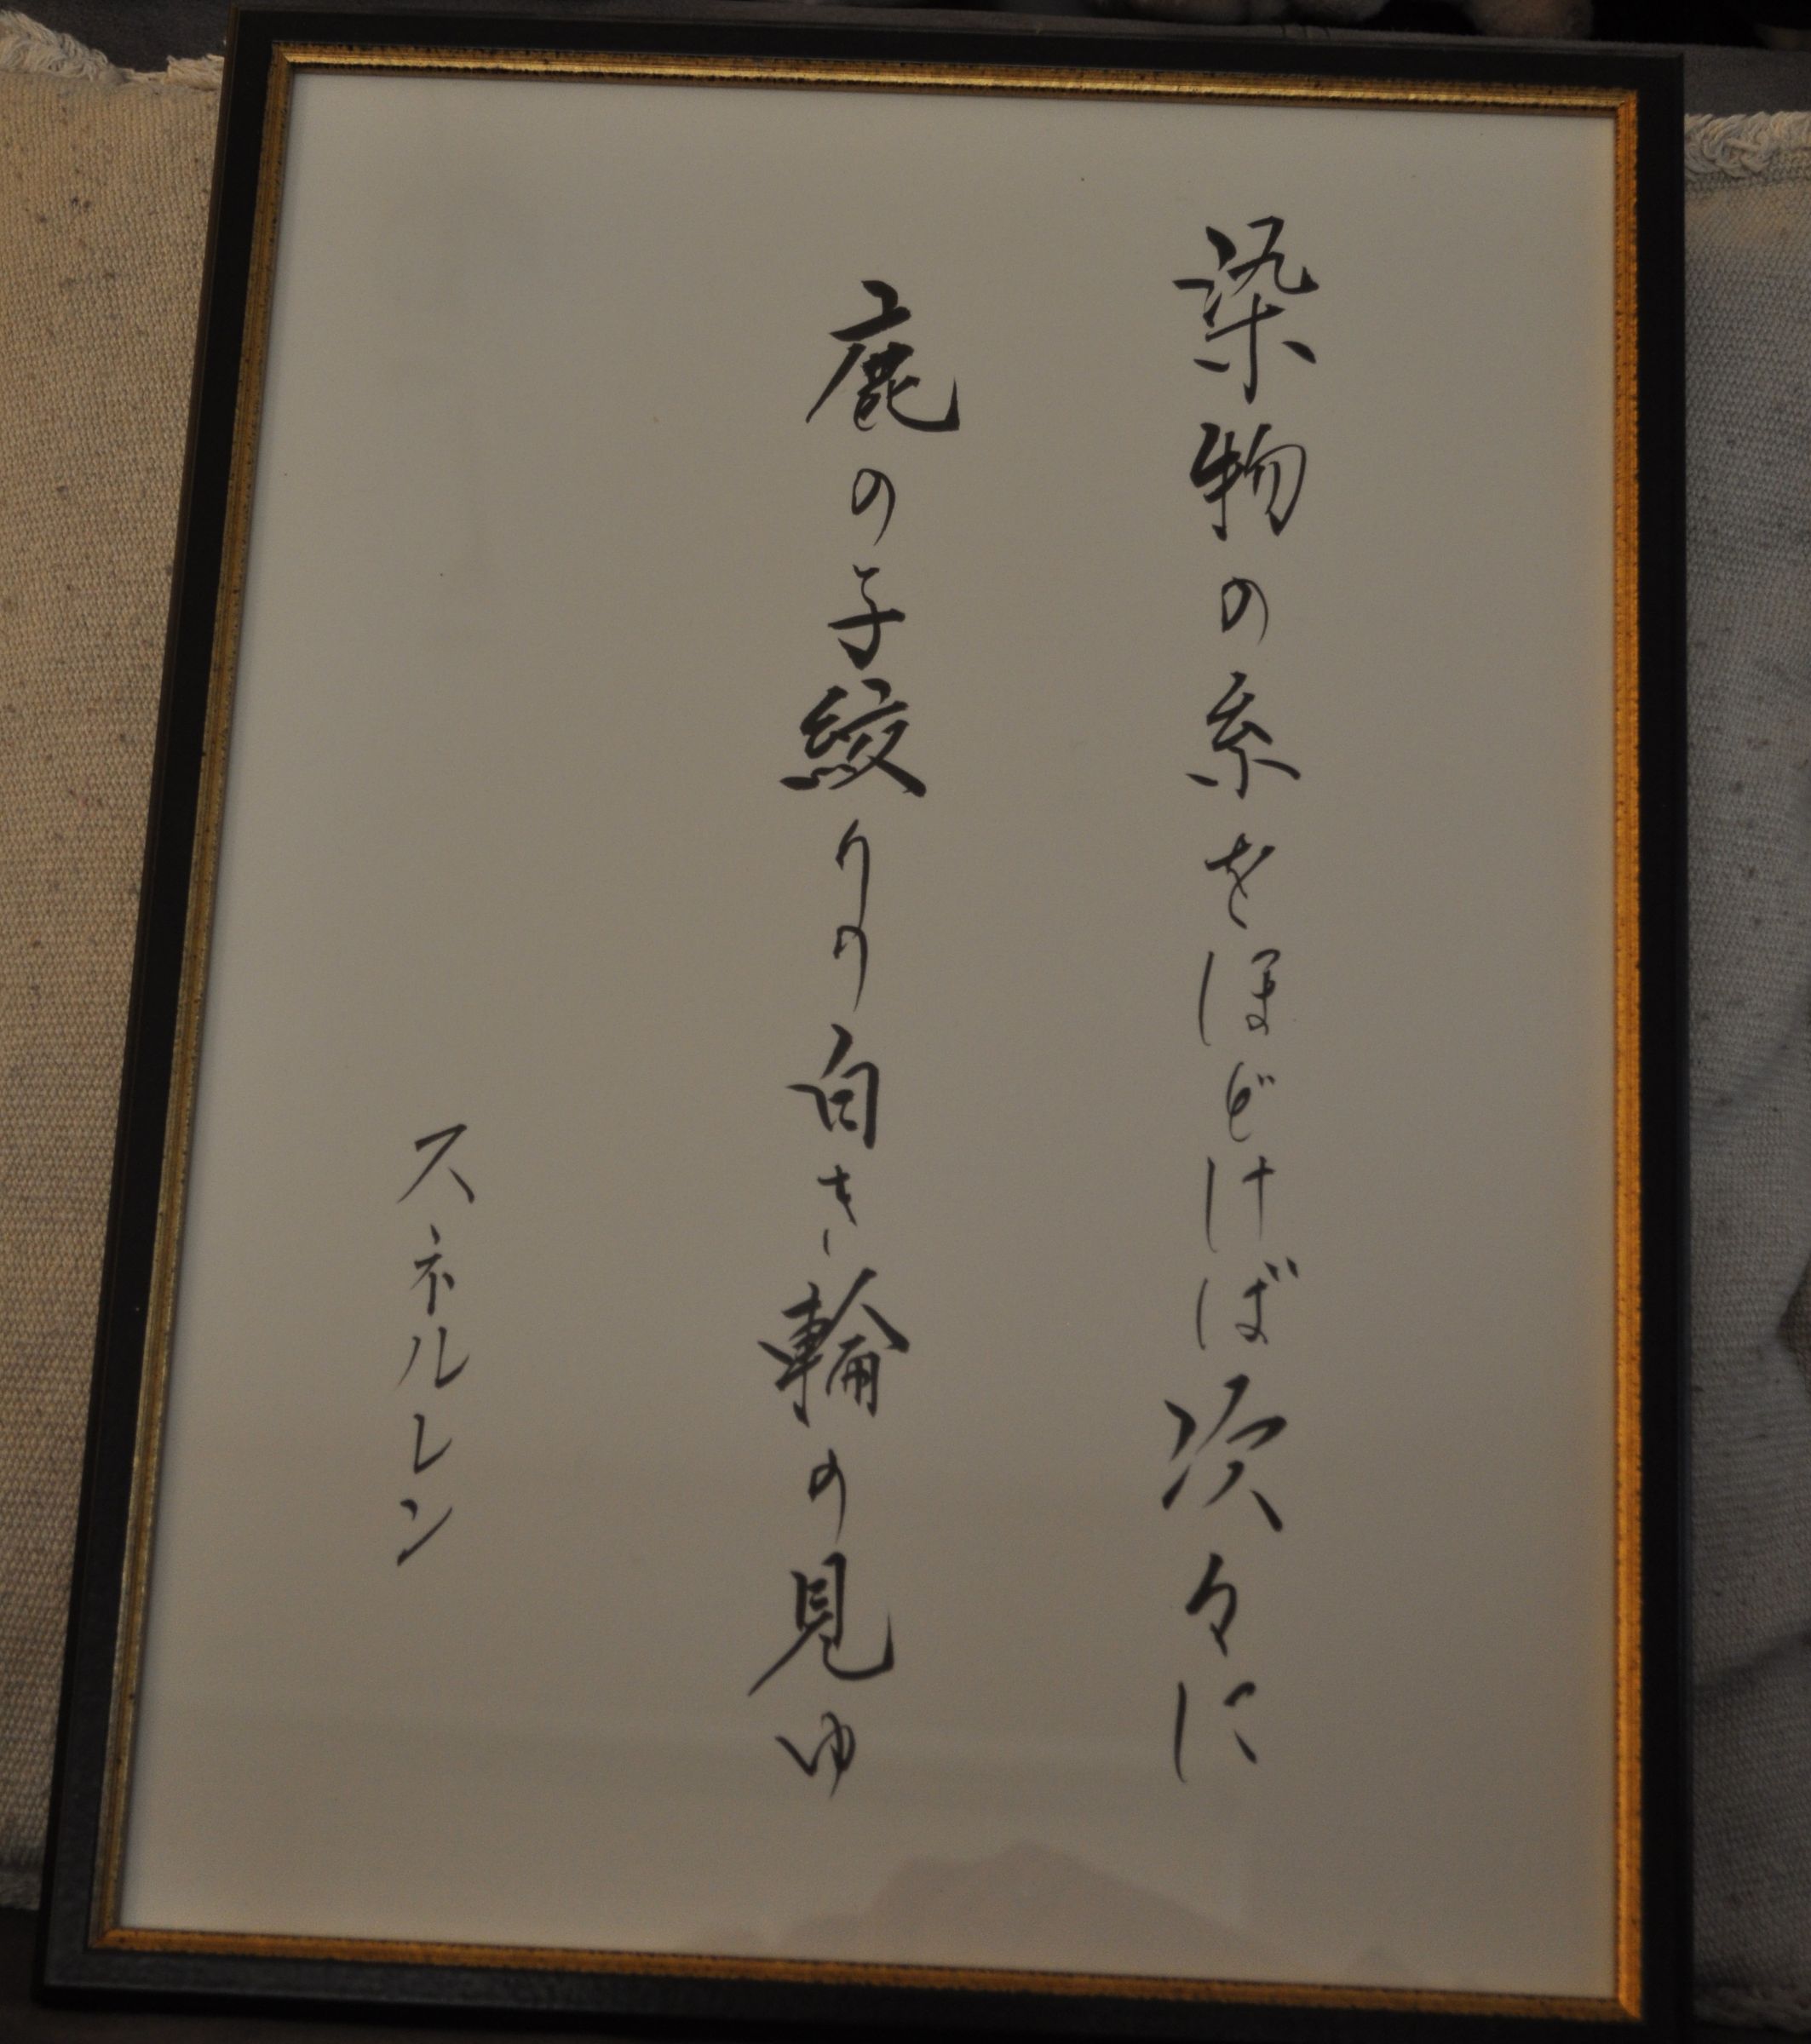 染物の糸をほどけば次々に
鹿の子絞りの白き輪の見ゆ
スネルレン